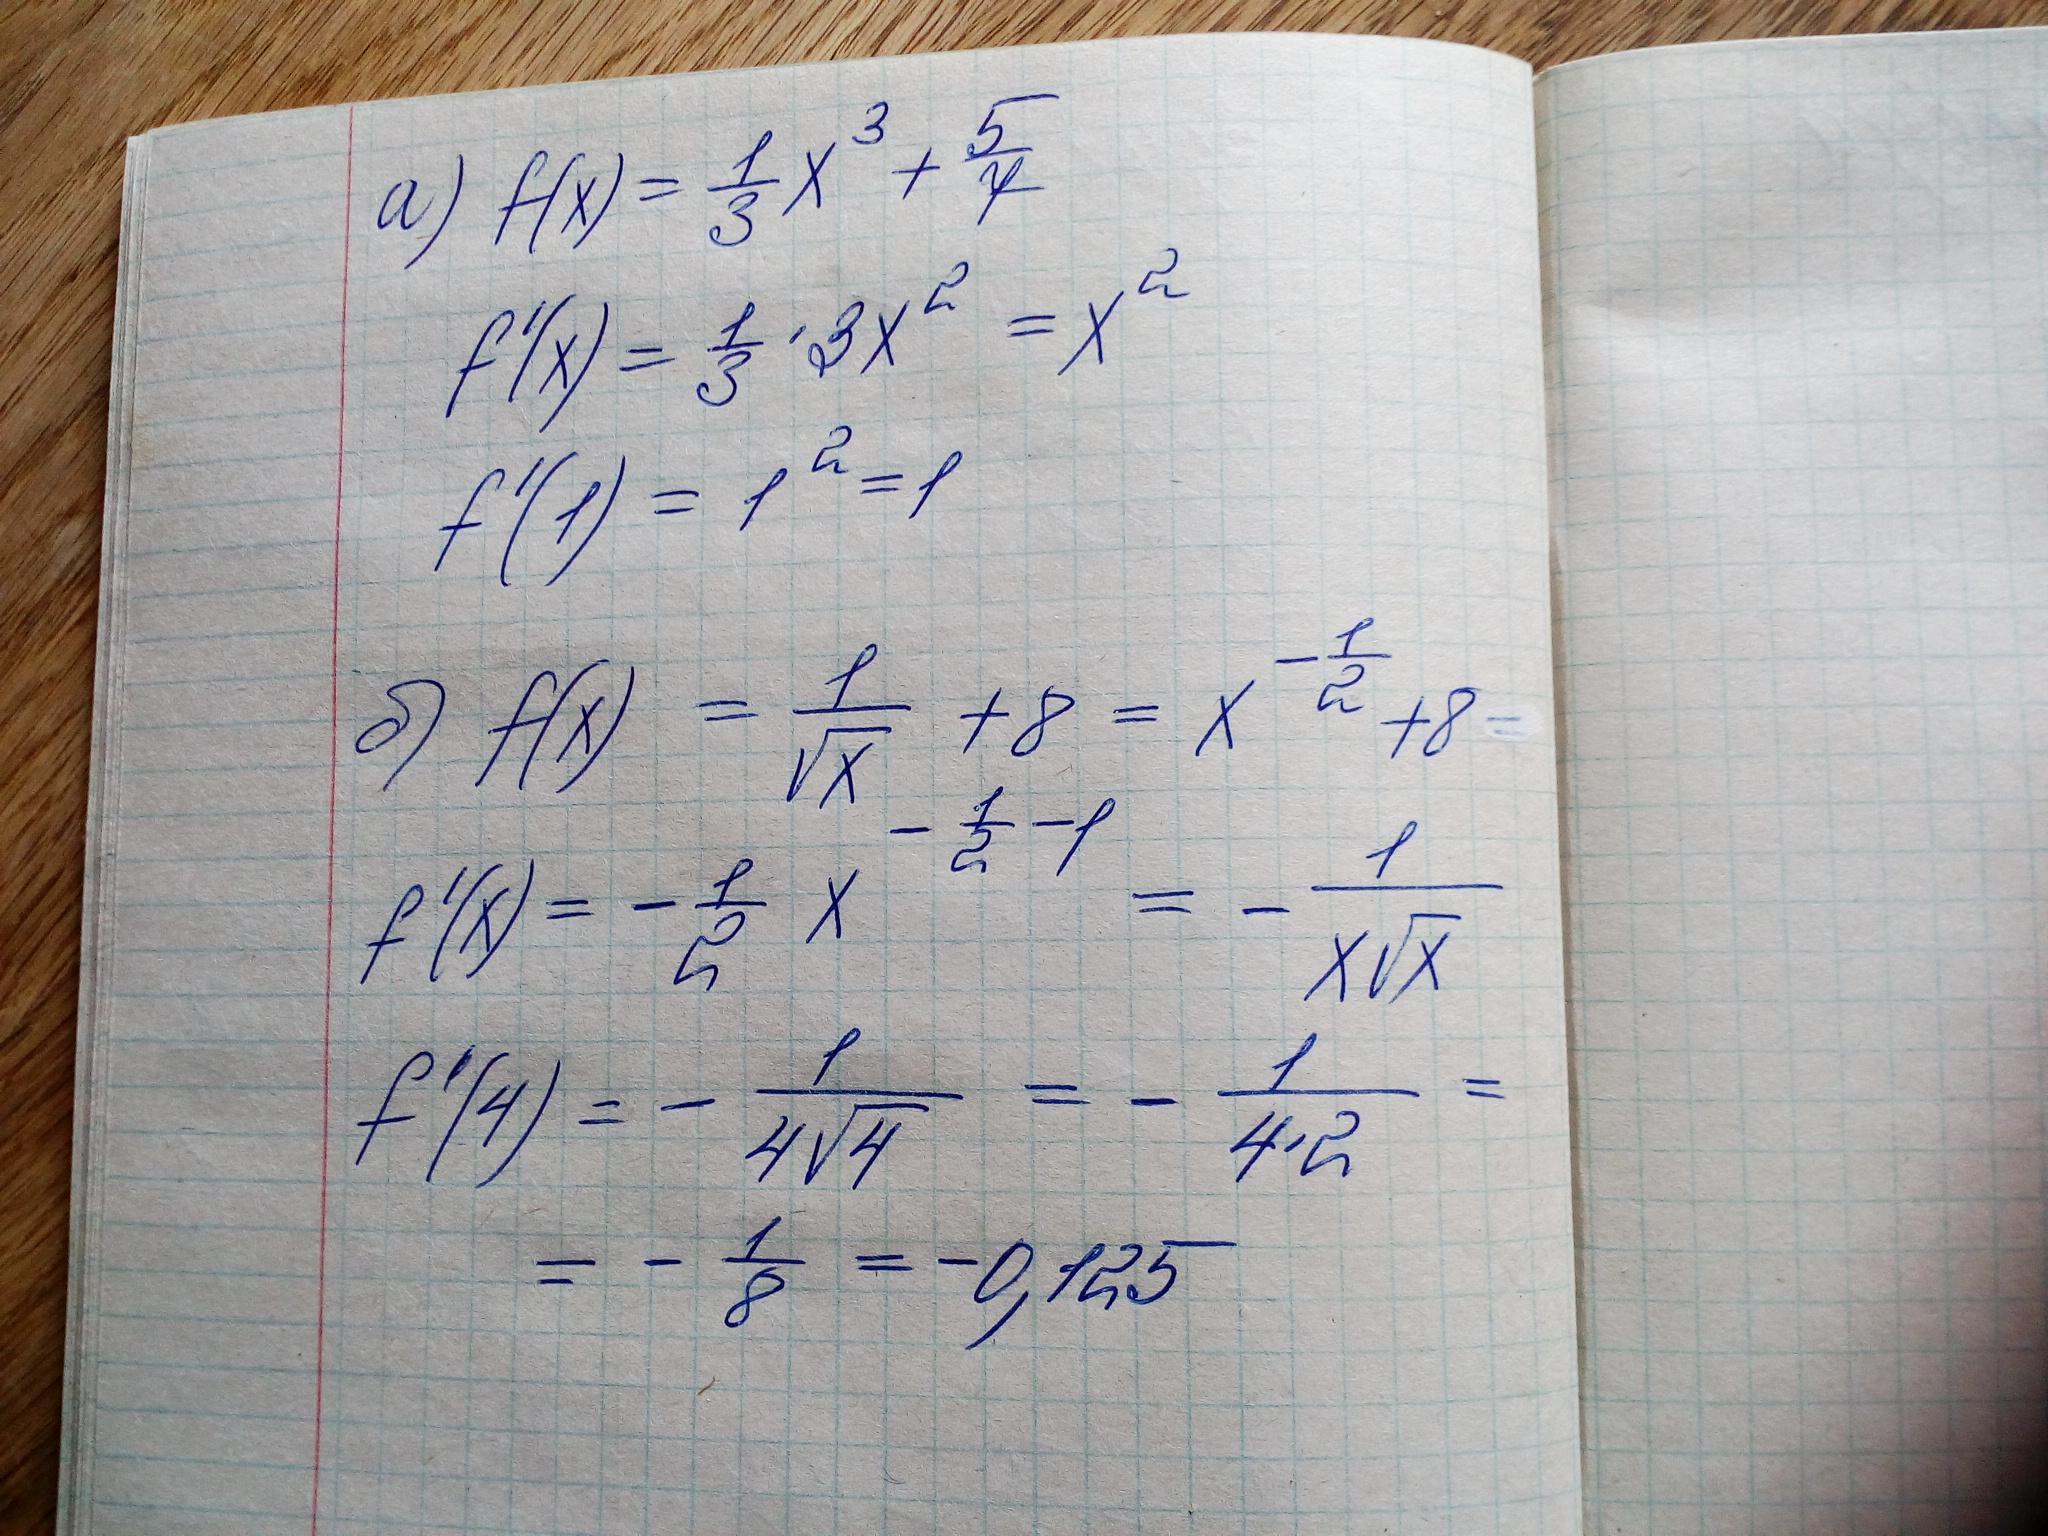 а) f(x) = 1/3 x³ + 5/4
f'(x) = 1/3 · 3x² = x²
f'(1) = 1² = 1
б) f(x) = 1/√x + 8 = x^(-1/2) + 8 =
f'(x) = -1/2 x^(-1/2 - 1) = -1/(x√x)
f'(4) = -1/(4√4) = -1/(4·2) =
= -1/8 = -0,125